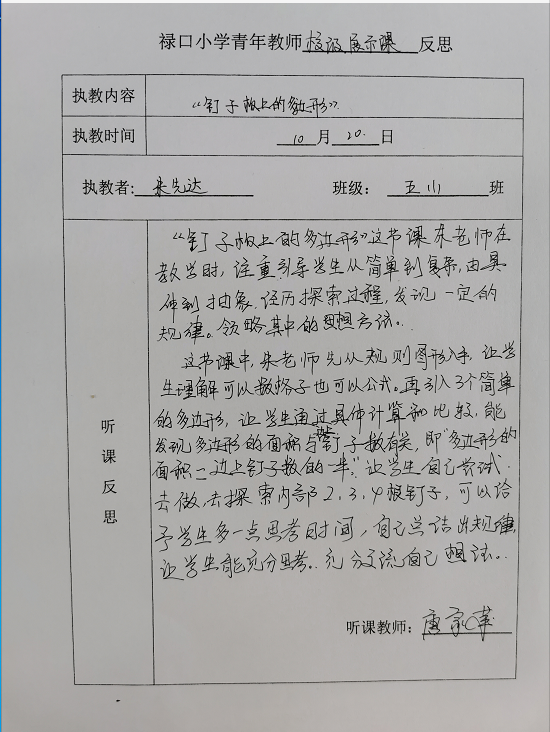 禄口小学青年教师校级展示课反思
执教内容 “钉子板上的多边形”
执教时间 10月20.日
执教者: 朱先达 班级: 五(1) 班
“钉子板上的多边形”这节课朱老师在
教学时,注重引导学生从简单到复杂,由具
体到抽象,经历探索过程,发现一定的
规律。领略其中的思想方法。
这节课中,朱老师先从规则图形入手,让学
生理解可以数格子也可以公式。再引入3个简单
的多边形,让学生通过具体计算和比较,能
发现多边形的面积与边上钉子数有关,即“多边形的
面积=边上钉子数的一半。”让学生自己尝试
去做,去探索内部2,3,4根钉子,可以给
予学生多一点思考时间,自己总结出规律,
让学生能充分思考。充分交流自己想法。
听课反思
听课教师: 唐家萍